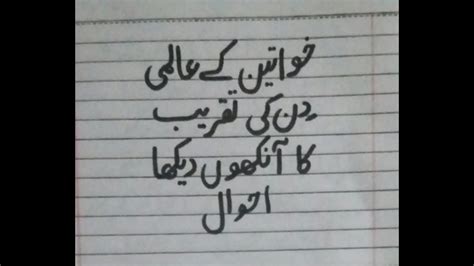 خواتین کے عالمی
دن کی تقریب
کا آنکھوں دیکھا
احوال